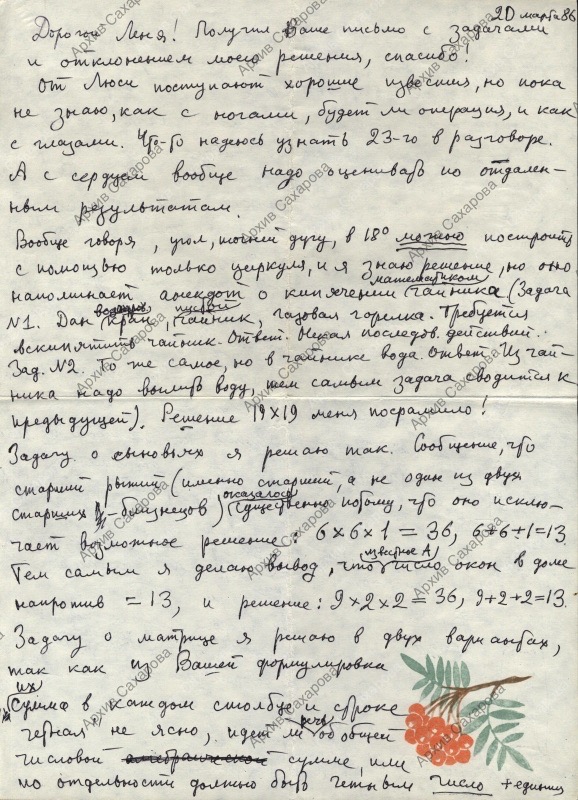 20 марта 86
Дорогой Леня! Получил Ваше письмо с задачами
и отклонением моего решения, спасибо!
От Люси поступают хорошие известия, но пока
не знаю, как с ногами, будет ли операция, и как
с глазами. Что-то надеюсь узнать 23-го в разговоре.
А с сердцем вообще надо оценивать по отдален-
ным результатам.
Вообще говоря, угол, точней дугу, в 18° можно построить
с помощью только циркуля, и я знаю решение, но оно
напоминает анекдот о кипячении математиком чайника (Задача
N1. Дан кран, пустой чайник, газовая горелка. Требуется
вскипятить чайник. Ответ. Некая последов. действий.
Зад. N2. То же самое, но в чайнике вода. Ответ. Из чай-
ника надо вылить воду, тем самым задача сводится к
предыдущей). Решение 19×19 меня посрамило!
Задачу о сыновьях я решаю так. Сообщение, что
старший рыжий (именно старший, а не один из двух
старших -близнецов) оказалось существенно потому, что оно исклю-
чает возможное решение: 6×6×1=36, 6+6+1=13.
Тем самым я делаю вывод, что известное А число окон в доме
напротив = 13, и решение: 9×2×2=36, 9+2+2=13.
Задачу о матрице я решаю в двух вариантах,
так как из Вашей формулировка
их
Сумма в каждом столбце и строке
четная не ясно, идет ли речь об общей
числовой сумме, или
по отдельности должно быть четным число + единиц
Архив Сахарова